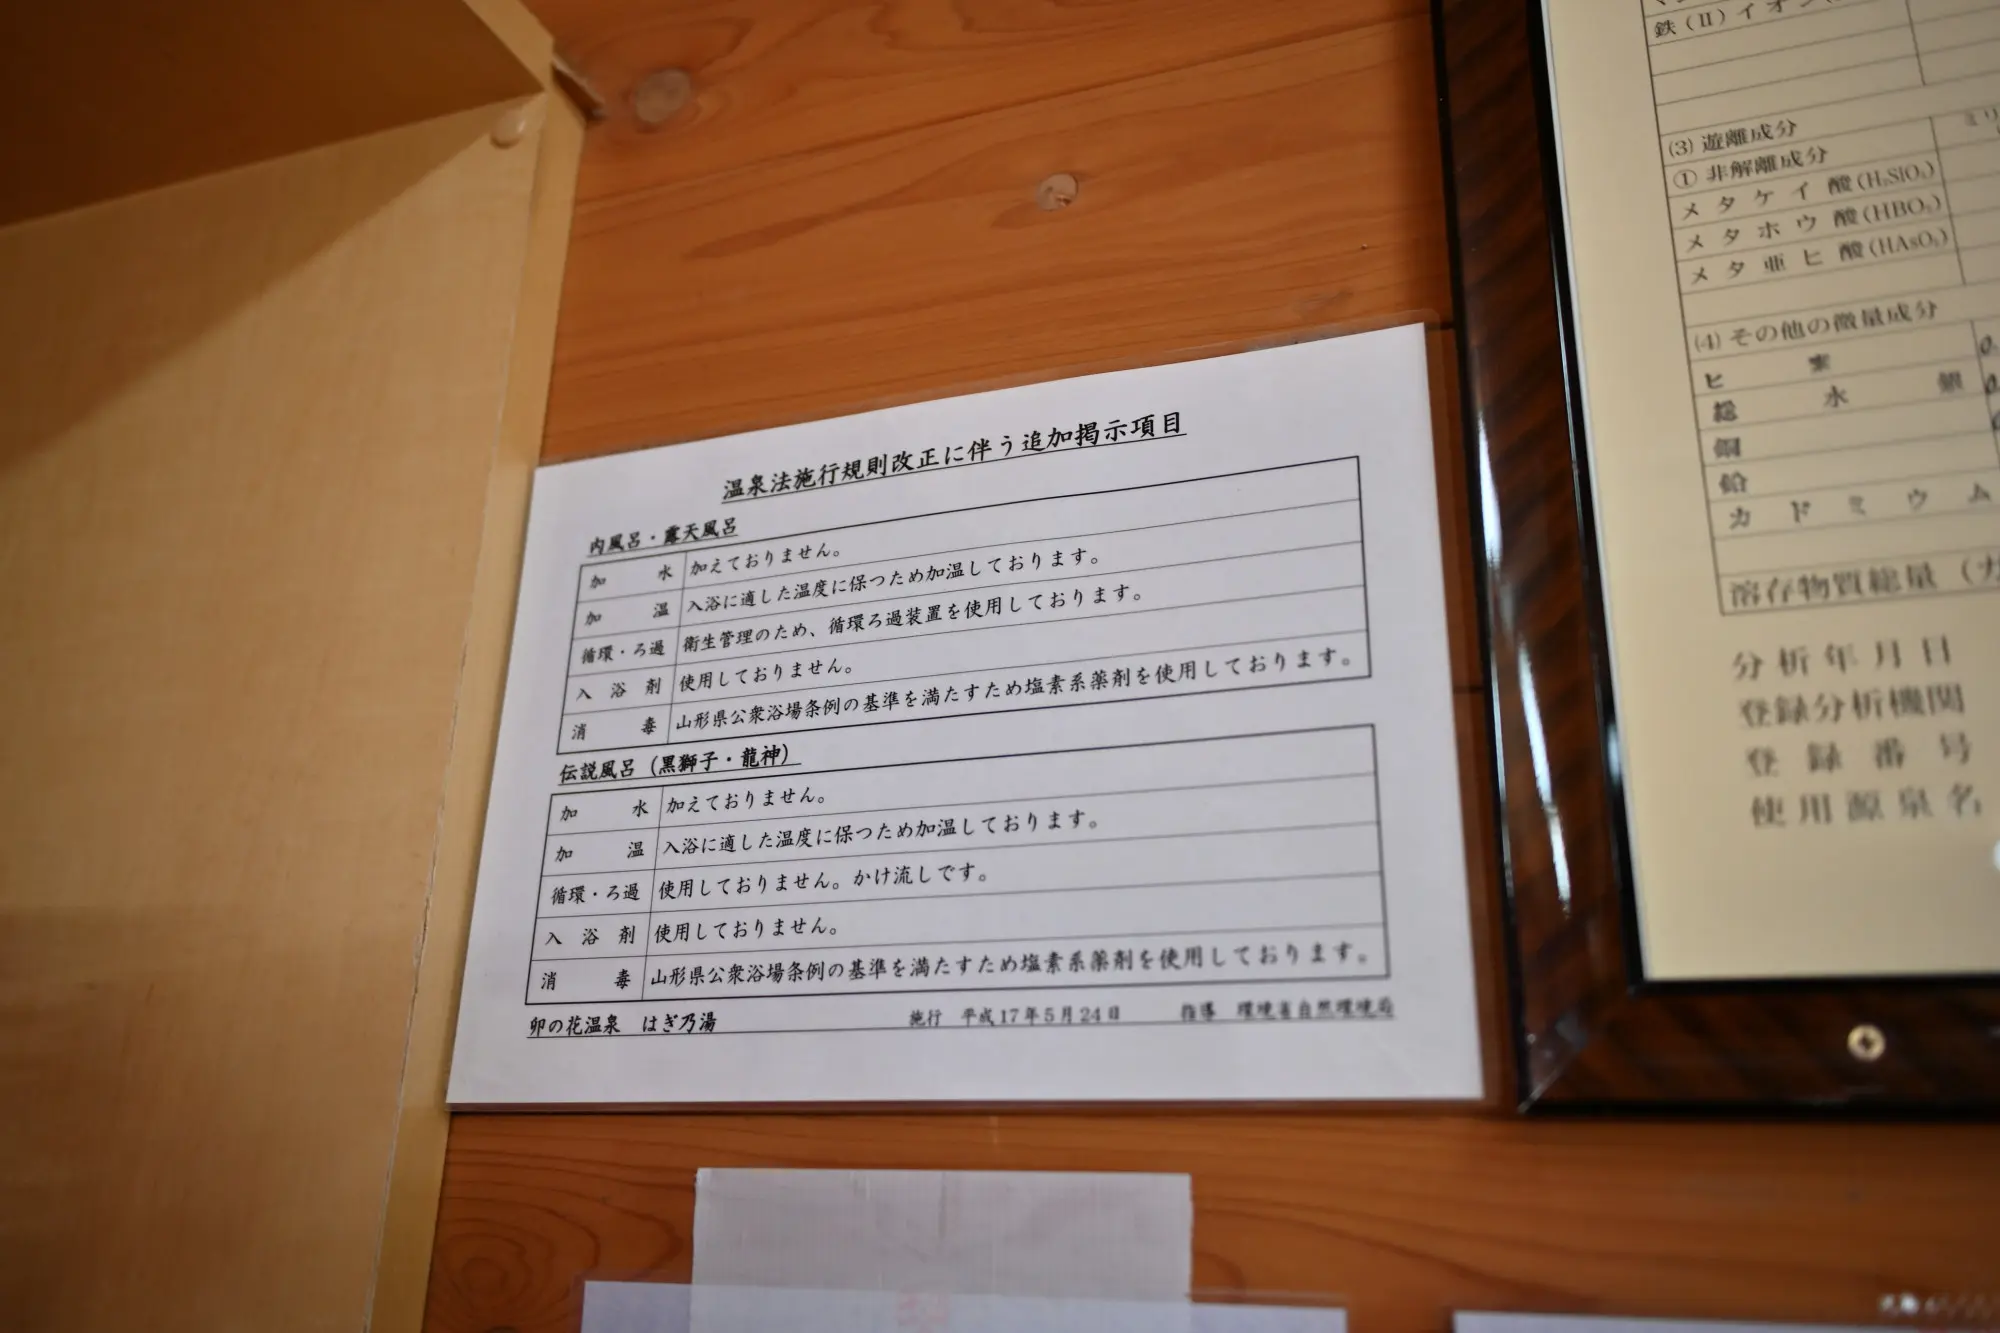 温泉法施行規則改正に伴う追加掲示項目
内風呂・露天風呂
加 水 加えておりません。
加 温 入浴に適した温度に保つため加温しております。
循環・ろ過 衛生管理のため、循環ろ過装置を使用しております。
入 浴 剤 使用しておりません。
消 毒 山形県公衆浴場条例の基準を満たすため塩素系薬剤を使用しております。
伝説風呂(黒獅子・龍神)
加 水 加えておりません。
加 温 入浴に適した温度に保つため加温しております。
循環・ろ過 使用しておりません。かけ流しです。
入 浴 剤 使用しておりません。
消 毒 山形県公衆浴場条例の基準を満たすため塩素系薬剤を使用しております。
卯の花温泉 はぎ乃湯 施行 平成17年5月24日 指導 環境省自然環境局
鉄(II)イオン
(3) 遊離成分
① 非解離成分
メタケイ酸(H₂SiO₃)
メタホウ酸(HBO₂)
メタ亜ヒ酸(HAsO₂)
(4) その他の微量成分
ヒ 素
総 水 銀
銅
鉛
カドミウム
溶存物質総量
分析年月日
登録分析機関
登録番号
使用源泉名